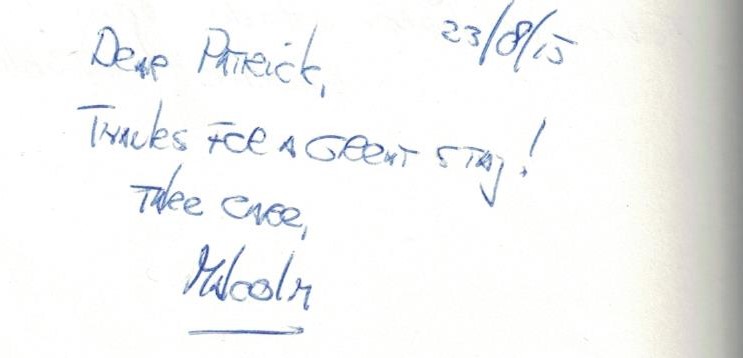 23/8/15
Dear Patrick,
Thanks for a great stay!
Take care,
Malcolm